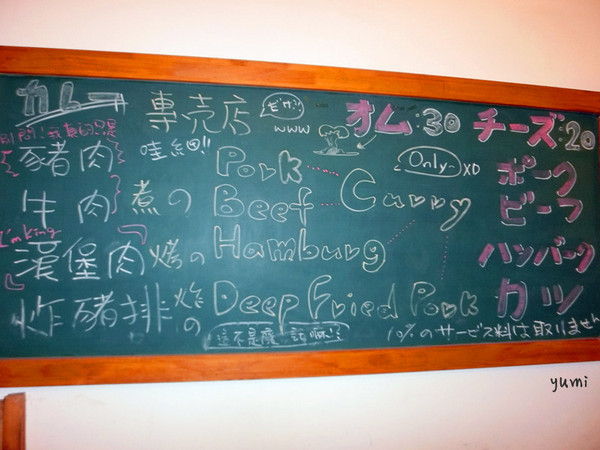 カレー 専売店 www オム:30 チーズ:20
豬肉 哇細 Pork Only XD ポーク
牛肉 煮の Beef Curry ビーフ
I'm King
漢堡肉 烤の Hamburg ハンバーグ
炸豬排 炸の Deep Fried Pork カツ
這不是廢話嘛!? 10%のサービス料は取りません
yumi